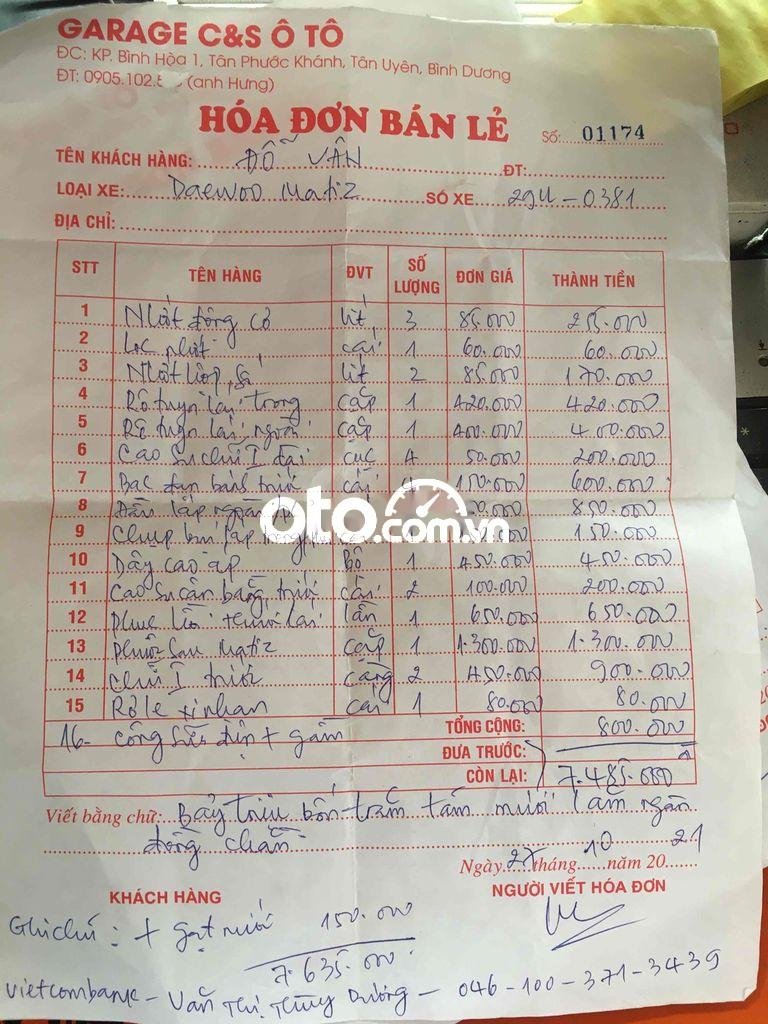 GARAGE C&S Ô TÔ
ĐC: KP. Bình Hòa 1, Tân Phước Khánh, Tân Uyên, Bình Dương
ĐT: 0905.102. (anh Hưng)
HÓA ĐƠN BÁN LẺ Số: 01174
TÊN KHÁCH HÀNG: ĐỖ VÂN ĐT:
LOẠI XE: Daewoo Matiz SỐ XE 29U-0381
ĐỊA CHỈ:
STT TÊN HÀNG ĐVT SỐ LƯỢNG ĐƠN GIÁ THÀNH TIỀN
1 Nhớt động cơ lít 3 85.000 255.000
2 Lọc nhớt cái 1 60.000 60.000
3 Nhớt hộp số lít 2 85.000 170.000
4 Rô tuyn lái trong cặp 1 420.000 420.000
5 Rô tuyn lái ngoài cặp 1 400.000 400.000
6 Cao su chữ I đại cục 4 50.000 200.000
7 Bạc đạn bánh trước cái 4 150.000 600.000
8 850.000
9 Chụp bụi láp 150.000
10 Dây cao áp bộ 1 450.000 450.000
11 Cao su cân bằng trước cái 2 100.000 200.000
12 Phục hồi thước lái lần 1 650.000 650.000
13 Phuộc sau Matiz cặp 1 1.300.000 1.300.000
14 Chữ I trước càng 2 450.000 900.000
15 Rơ le xi nhan cái 1 80.000 80.000
16- Công sửa điện + gầm TỔNG CỘNG: 800.000
ĐƯA TRƯỚC:
CÒN LẠI: 7.485.000đ
Viết bằng chữ: Bảy triệu bốn trăm tám mươi lăm ngàn
đồng chẵn
Ngày 27 tháng 10 năm 2021
KHÁCH HÀNG NGƯỜI VIẾT HÓA ĐƠN
Ghi chú: + gạt nước 150.000
7.635.000
Vietcombank - Văn Thị Thùy Dương - 046-100-371-3439
oto.com.vn